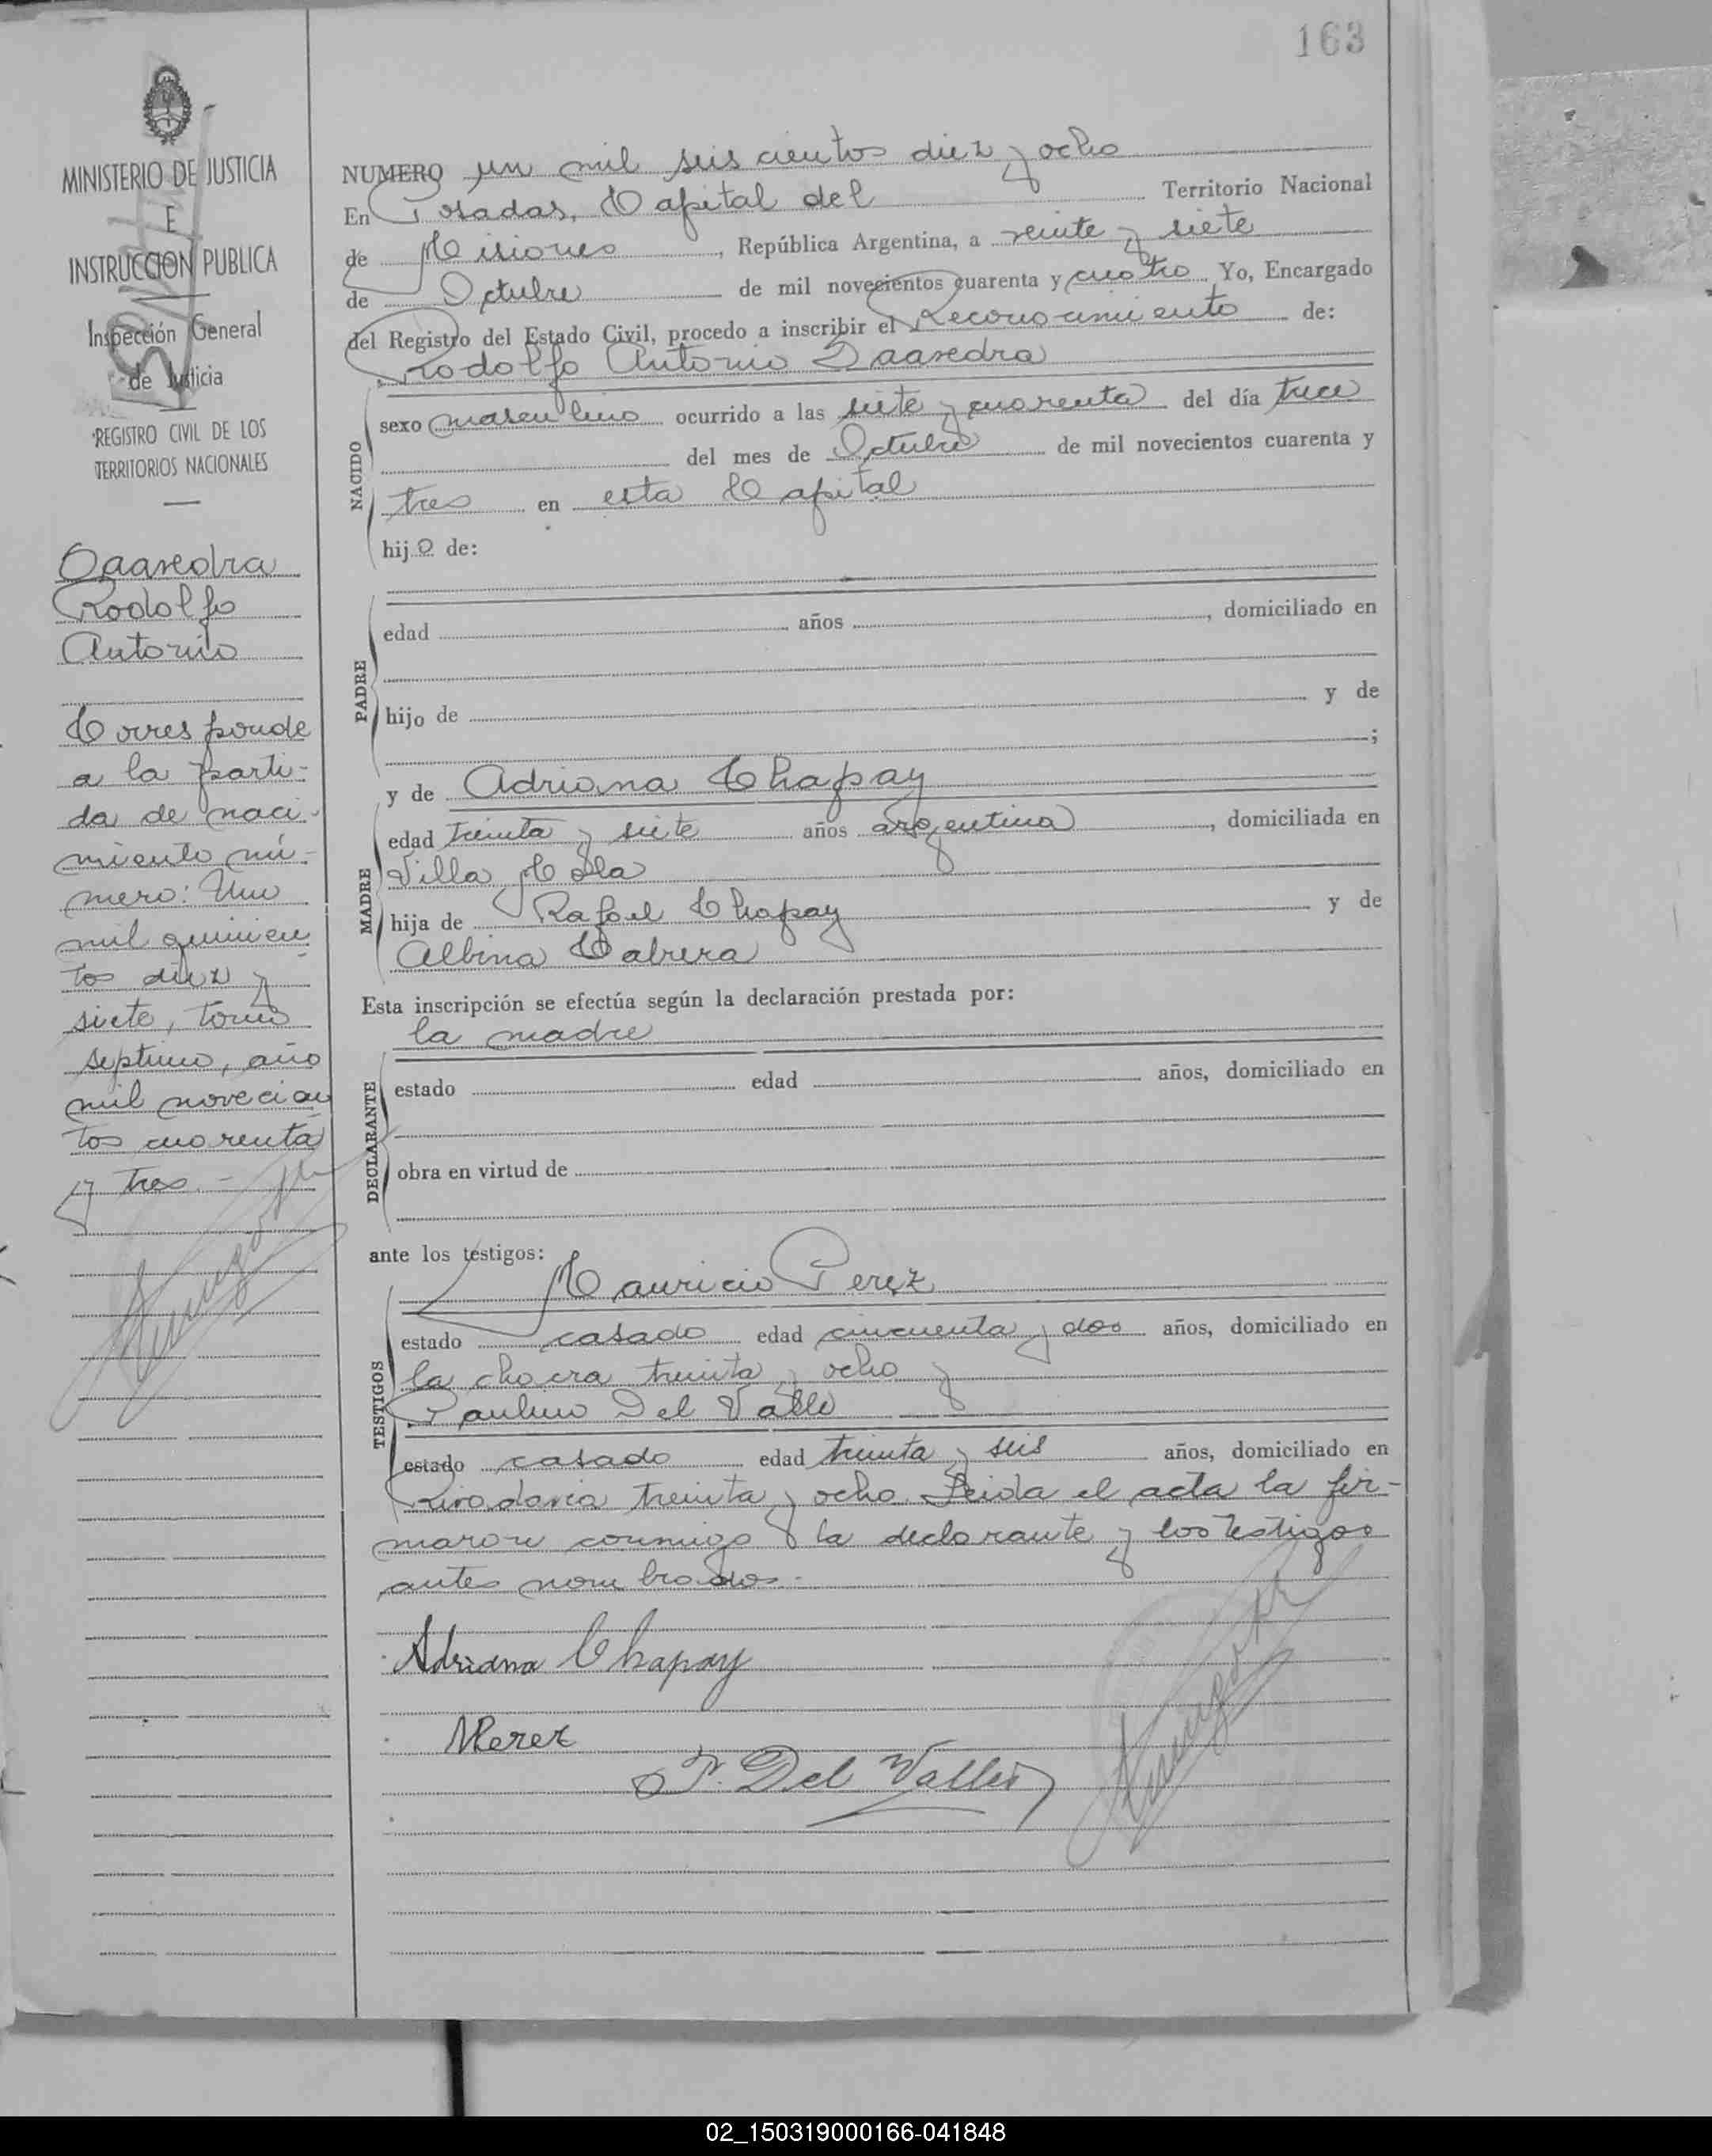 163
MINISTERIO DE JUSTICIA
E
INSTRUCCION PUBLICA
Inspección General
de Justicia
REGISTRO CIVIL DE LOS
TERRITORIOS NACIONALES
Saavedra
Rodolfo
Antonio
Corresponde
a la parti-
da de naci-
miento nú-
mero: Uno
mil quinien
tos diez y
siete, tomo
septimo, año
mil novecien
tos cuarenta
y tres.-
NUMERO un mil seis cientos diez y ocho
En Posadas, Capital del Territorio Nacional
de Misiones, República Argentina, a veinte y siete
de Octubre de mil novecientos cuarenta y cuatro Yo, Encargado
del Registro del Estado Civil, procedo a inscribir el Reconocimiento de:
Rodolfo Antonio Saavedra
NACIDO
sexo masculino ocurrido a las siete y cuarenta del día trece
del mes de Octubre de mil novecientos cuarenta y
tres en esta Capital
hijo de:
PADRE
edad años , domiciliado en
hijo de y de
;
y de Adriana Chapay
MADRE
edad treinta y siete años argentina, domiciliada en
Villa Mola
hija de Rafael Chapay y de
Albina Cabrera
Esta inscripción se efectúa según la declaración prestada por:
la madre
DECLARANTE
estado edad años, domiciliado en
obra en virtud de
ante los testigos:
Mauricio Perez
TESTIGOS
estado casado edad cincuenta y dos años, domiciliado en
la chacra treinta y ocho y
Paulino Del Valle
estado casado edad treinta y seis años, domiciliado en
Rivadavia treinta y ocho. Leida el acta la fir-
maron conmigo la declarante y los testigos
antes nombrados.-
Adriana Chapay
MPerez
P. Del Valle
02_150319000166-041848